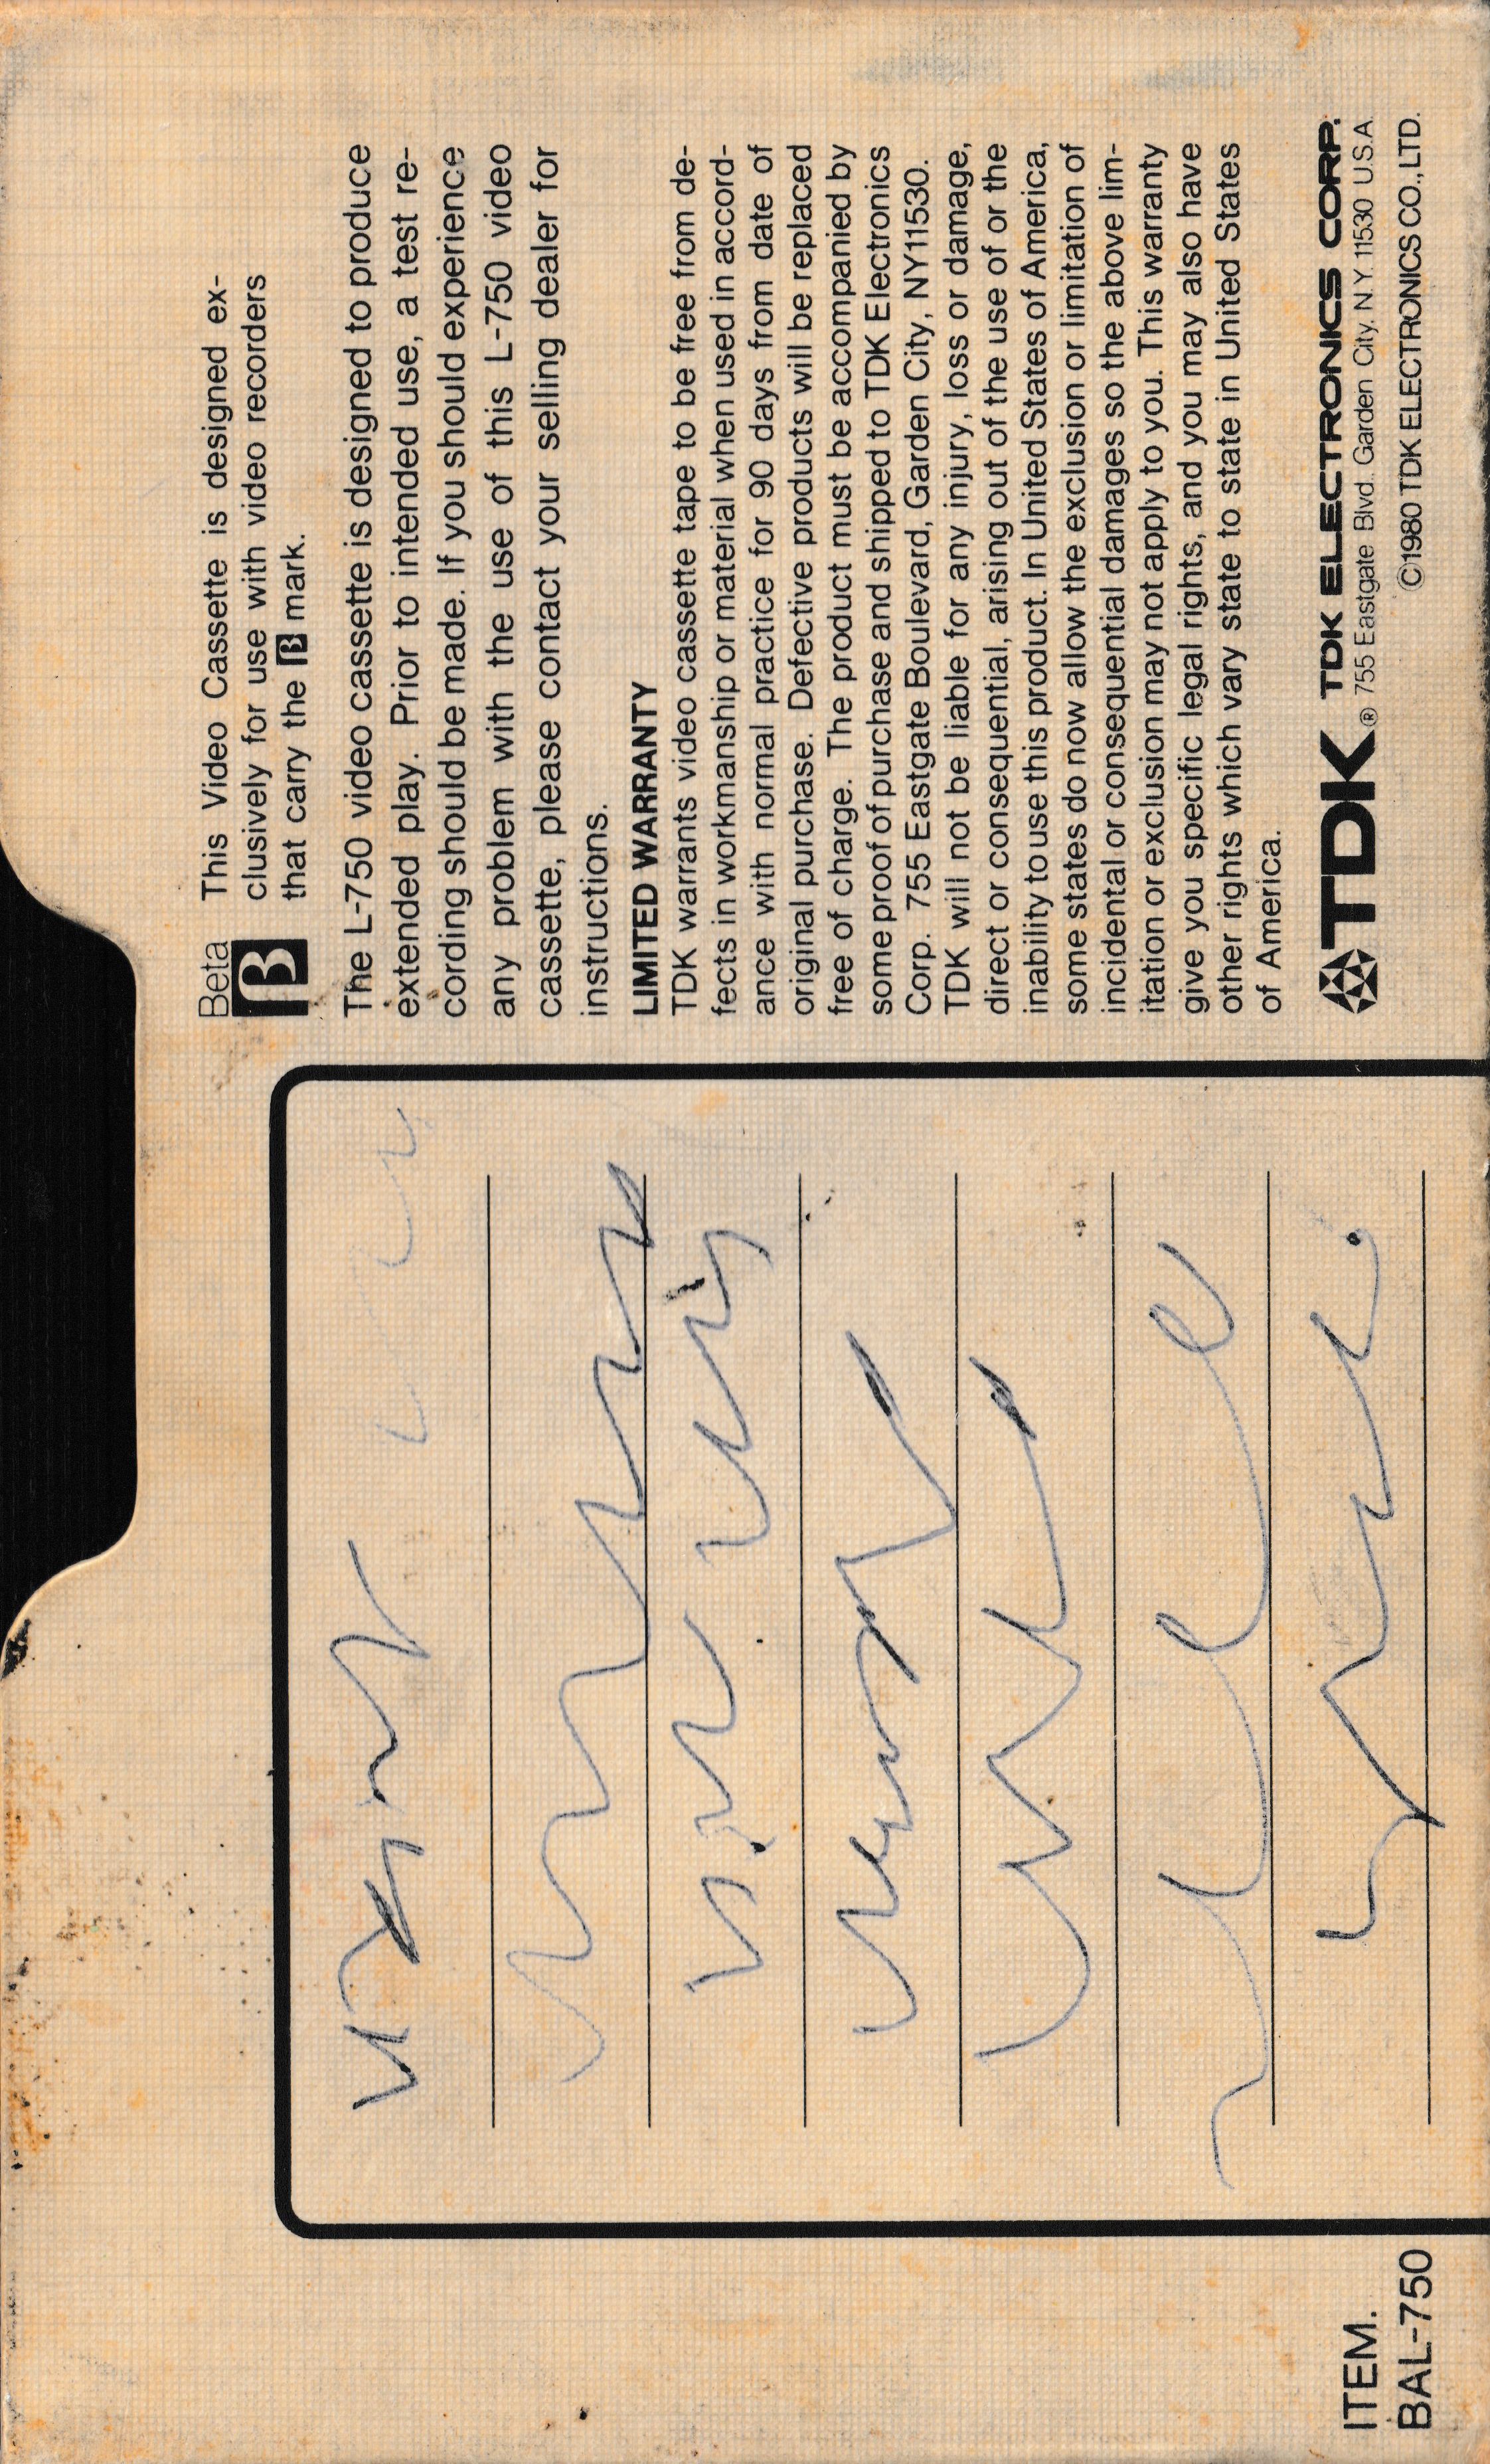 Beta
β
This Video Cassette is designed ex-
clusively for use with video recorders
that carry the β mark.
The L-750 video cassette is designed to produce
extended play. Prior to intended use, a test re-
cording should be made. If you should experience
any problem with the use of this L-750 video
cassette, please contact your selling dealer for
instructions.
LIMITED WARRANTY
TDK warrants video cassette tape to be free from de-
fects in workmanship or material when used in accord-
ance with normal practice for 90 days from date of
original purchase. Defective products will be replaced
free of charge. The product must be accompanied by
some proof of purchase and shipped to TDK Electronics
Corp. 755 Eastgate Boulevard, Garden City, NY11530.
TDK will not be liable for any injury, loss or damage,
direct or consequential, arising out of the use of or the
inability to use this product. In United States of America,
some states do now allow the exclusion or limitation of
incidental or consequential damages so the above lim-
itation or exclusion may not apply to you. This warranty
give you specific legal rights, and you may also have
other rights which vary state to state in United States
of America.
TDK® TDK ELECTRONICS CORP.
755 Eastgate Blvd. Garden City, N.Y. 11530 U.S.A.
©1980 TDK ELECTRONICS CO.,LTD.
ITEM.
BAL-750